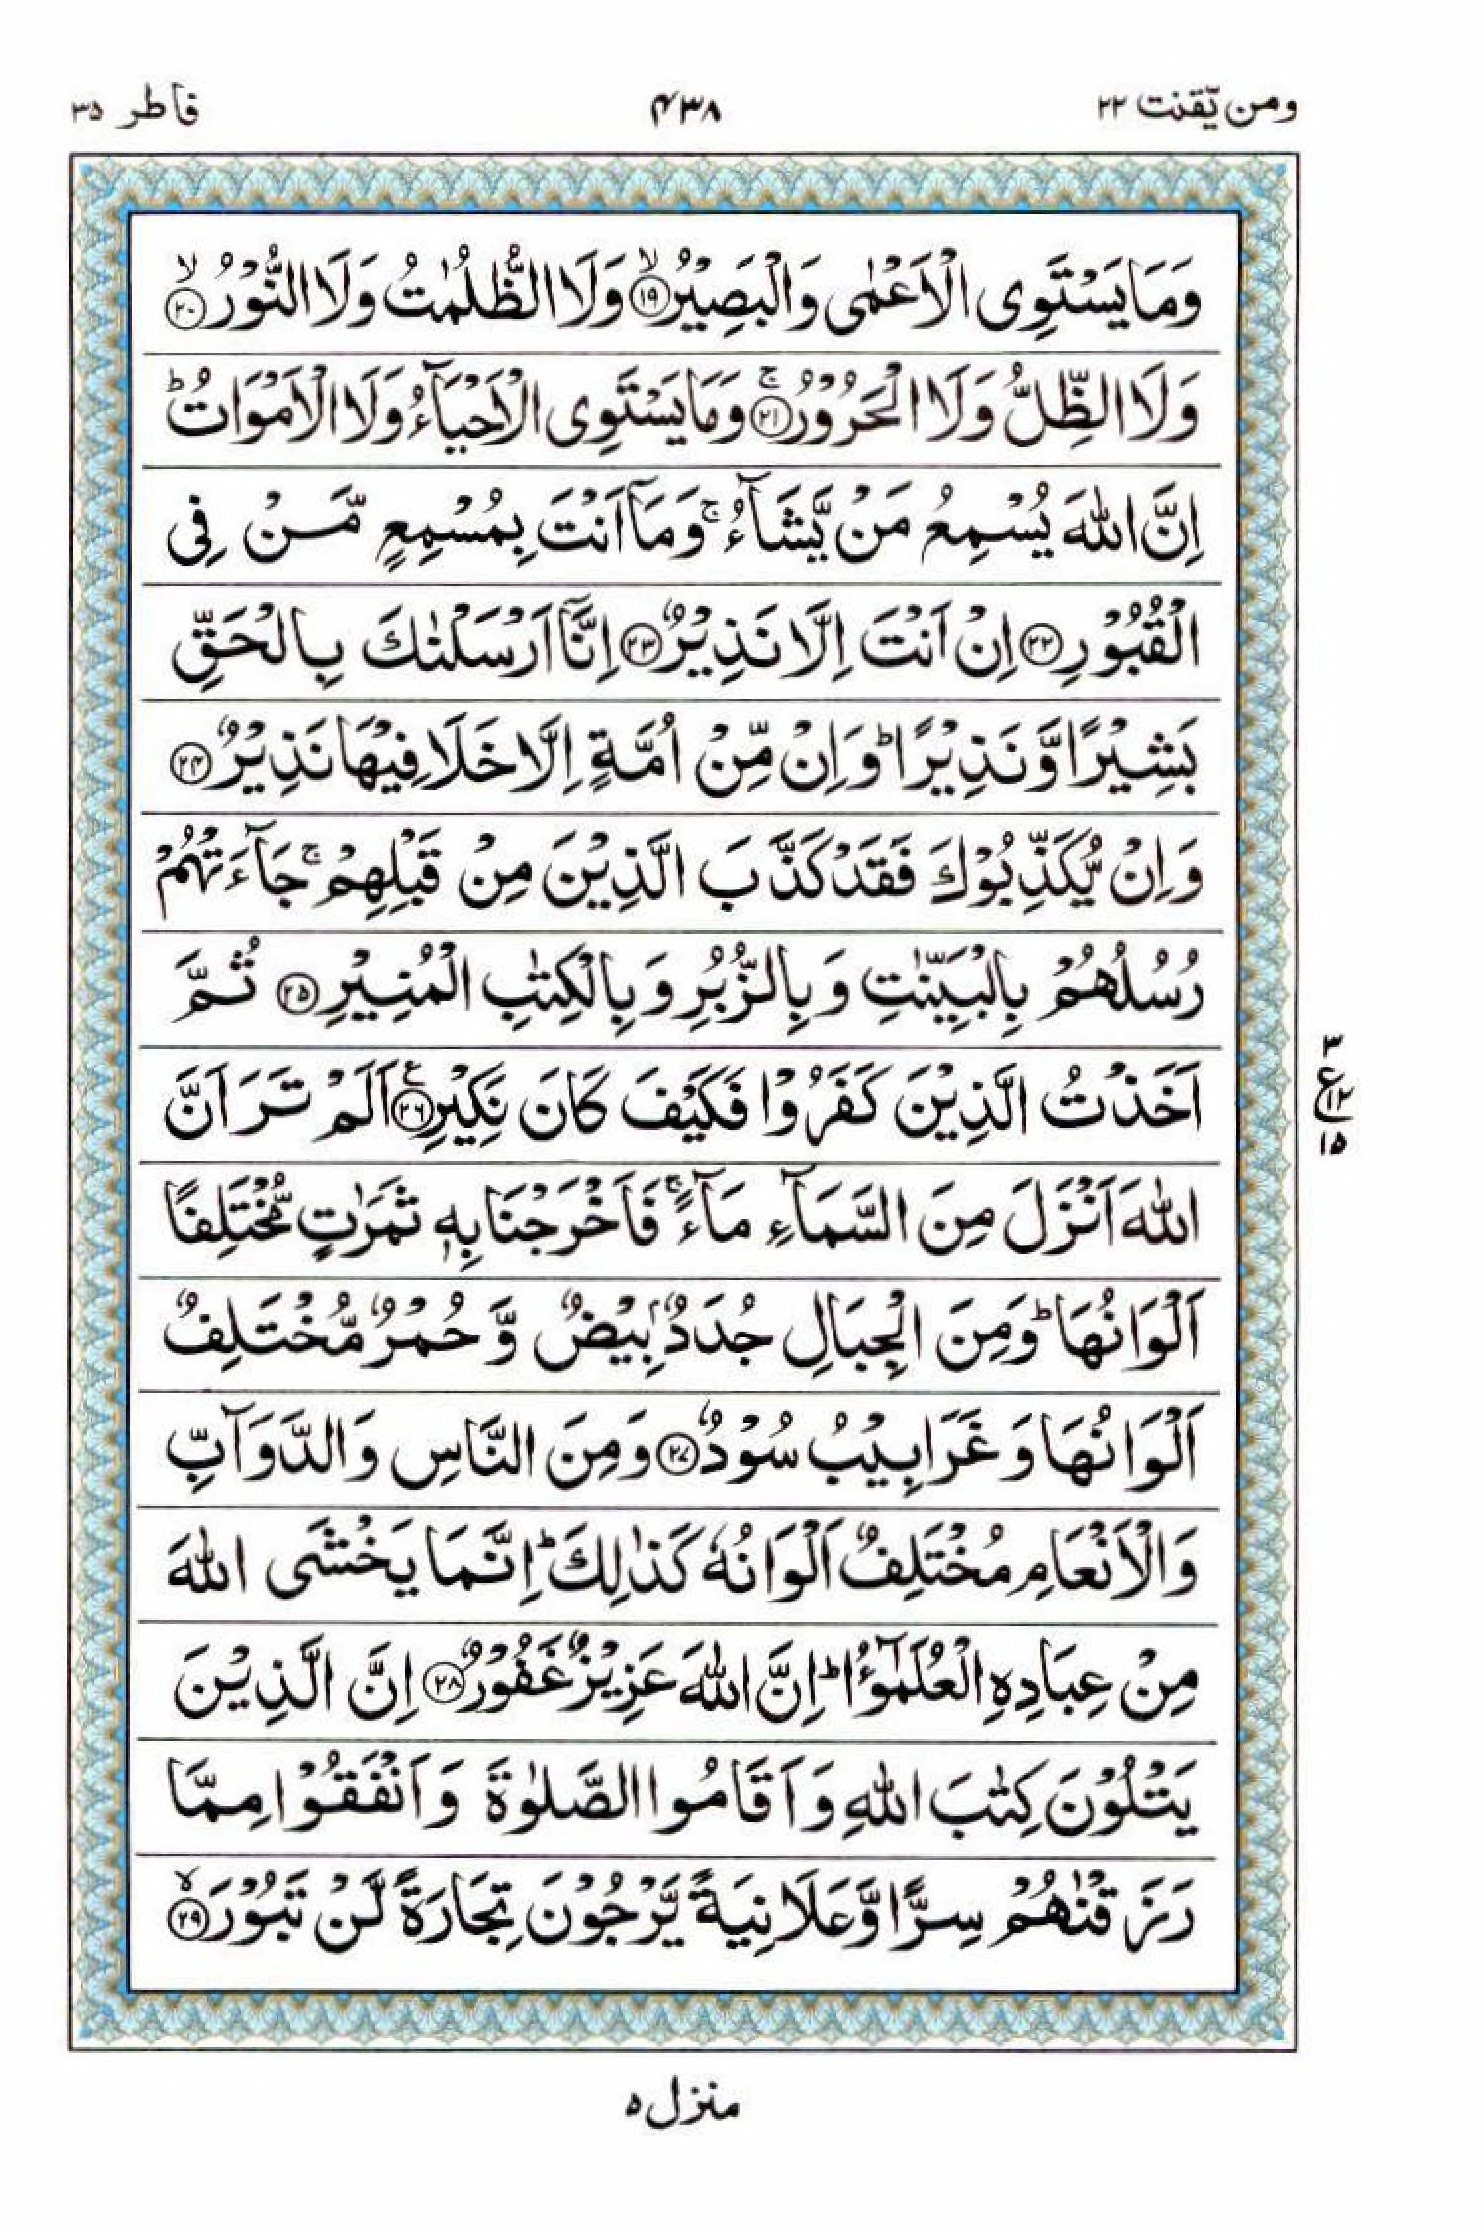 ومن یّقنت ٢٢ ۴٣٨ فاطر ٣۵
وَمَا يَسْتَوِى الْاَعْمٰى وَالْبَصِيْرُ ۙ‏﴿۱۹﴾ وَلَا الظُّلُمٰتُ وَلَا النُّوْرُ ۙ‏﴿۲۰﴾
وَلَا الظِّلُّ وَلَا الْحَرُوْرُ ۚ‏﴿۲۱﴾ وَمَا يَسْتَوِى الْاَحْيَآءُ وَلَا الْاَمْوَاتُ ؕ
اِنَّ اللّٰهَ يُسْمِعُ مَنْ يَّشَآءُ ۚ وَمَاۤ اَنْتَ بِمُسْمِعٍ مَّنْ فِى
الْقُبُوْرِ ﴿۲۲﴾ اِنْ اَنْتَ اِلَّا نَذِيْرٌ ﴿۲۳﴾ اِنَّاۤ اَرْسَلْنٰكَ بِالْحَقِّ
بَشِيْرًا وَّنَذِيْرًا ؕ وَاِنْ مِّنْ اُمَّةٍ اِلَّا خَلَا فِيْهَا نَذِيْرٌ ﴿۲۴﴾
وَاِنْ يُّكَذِّبُوْكَ فَقَدْ كَذَّبَ الَّذِيْنَ مِنْ قَبْلِهِمْ ۚ جَآءَتْهُمْ
رُسُلُهُمْ بِالْبَيِّنٰتِ وَبِالزُّبُرِ وَبِالْكِتٰبِ الْمُنِيْرِ ﴿۲۵﴾ ثُمَّ
اَخَذْتُ الَّذِيْنَ كَفَرُوْا فَكَيْفَ كَانَ نَكِيْرِ ﴿۲۶﴾ع اَلَمْ تَرَ اَنَّ
٣
ع ١٢
١۵
اللّٰهَ اَنْزَلَ مِنَ السَّمَآءِ مَآءً ۚ فَاَخْرَجْنَا بِهٖ ثَمَرٰتٍ مُّخْتَلِفًا
اَلْوَانُهَا ؕ وَمِنَ الْجِبَالِ جُدَدٌۢ بِيْضٌ وَّحُمْرٌ مُّخْتَلِفٌ
اَلْوَانُهَا وَغَرَابِيْبُ سُوْدٌ ﴿۲۷﴾ وَمِنَ النَّاسِ وَالدَّوَآبِّ
وَالْاَنْعَامِ مُخْتَلِفٌ اَلْوَانُهٗ كَذٰلِكَ ؕ اِنَّمَا يَخْشَى اللّٰهَ
مِنْ عِبَادِهِ الْعُلَمٰٓؤُا ؕ اِنَّ اللّٰهَ عَزِيْزٌ غَفُوْرٌ ﴿۲۸﴾ اِنَّ الَّذِيْنَ
يَتْلُوْنَ كِتٰبَ اللّٰهِ وَاَقَامُوا الصَّلٰوةَ وَاَنْفَقُوْا مِمَّا
رَزَقْنٰهُمْ سِرًّا وَّعَلَانِيَةً يَّرْجُوْنَ تِجَارَةً لَّنْ تَبُوْرَ ۙ‏﴿۲۹﴾
منزل ۵